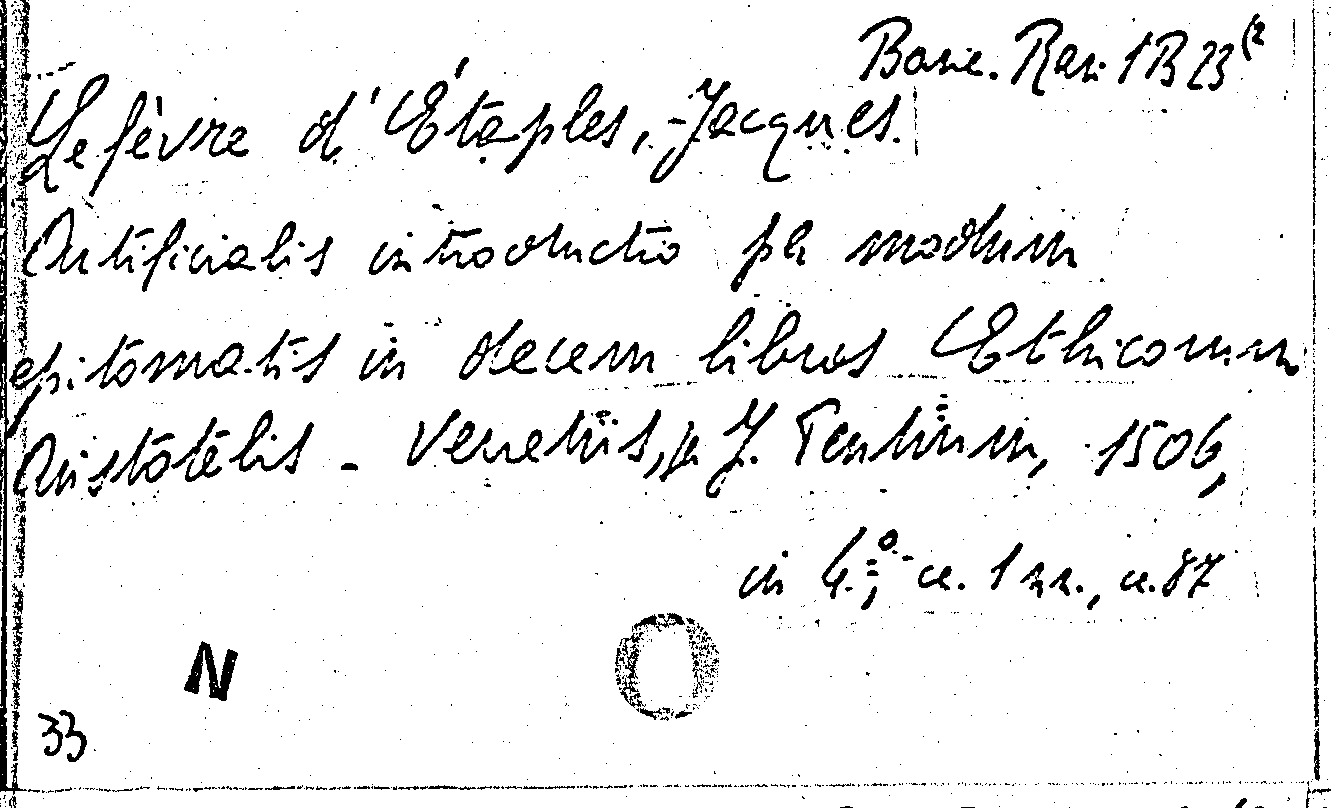 Banc. Rari 1 B 23 (2
Lefèvre d'Étaples, Jacques.
Artificialis introductio per modum
epitomatis in decem libros Ethicorum
Aristotelis - Venetiis, p. J. Pentium, 1506,
in 4.º, cc. 1 nn., c. 87
N
33